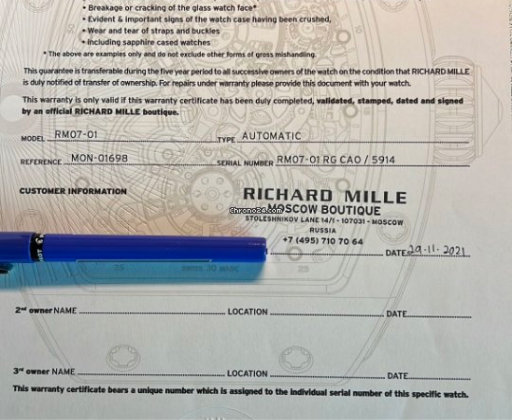 • Breakage or cracking of the glass watch face*
• Evident & important signs of the watch case having been crushed,
• Wear and tear of straps and buckles
• Including sapphire cased watches
* The above are examples only and do not exclude other forms of gross mishandling.
This guarantee is transferable during the five year period to all successive owners of the watch on the condition that RICHARD MILLE
is duly notified of transfer of ownership. For repairs under warranty please provide this document with your watch.
This warranty is only valid if this warranty certificate has been duly completed, validated, stamped, dated and signed
by an official RICHARD MILLE boutique.
MODEL RM07-01 TYPE AUTOMATIC
REFERENCE MON-01698 SERIAL NUMBER RM07-01 RG CAO / 5914
CUSTOMER INFORMATION
RICHARD MILLE
Chrono24.com
MOSCOW BOUTIQUE
STOLESHNIKOV LANE 14/1 - 107031 - MOSCOW
RUSSIA
+7 (495) 710 70 64
DATE 29.11.2021
2nd owner NAME LOCATION DATE
3rd owner NAME LOCATION DATE
This warranty certificate bears a unique number which is assigned to the individual serial number of this specific watch.